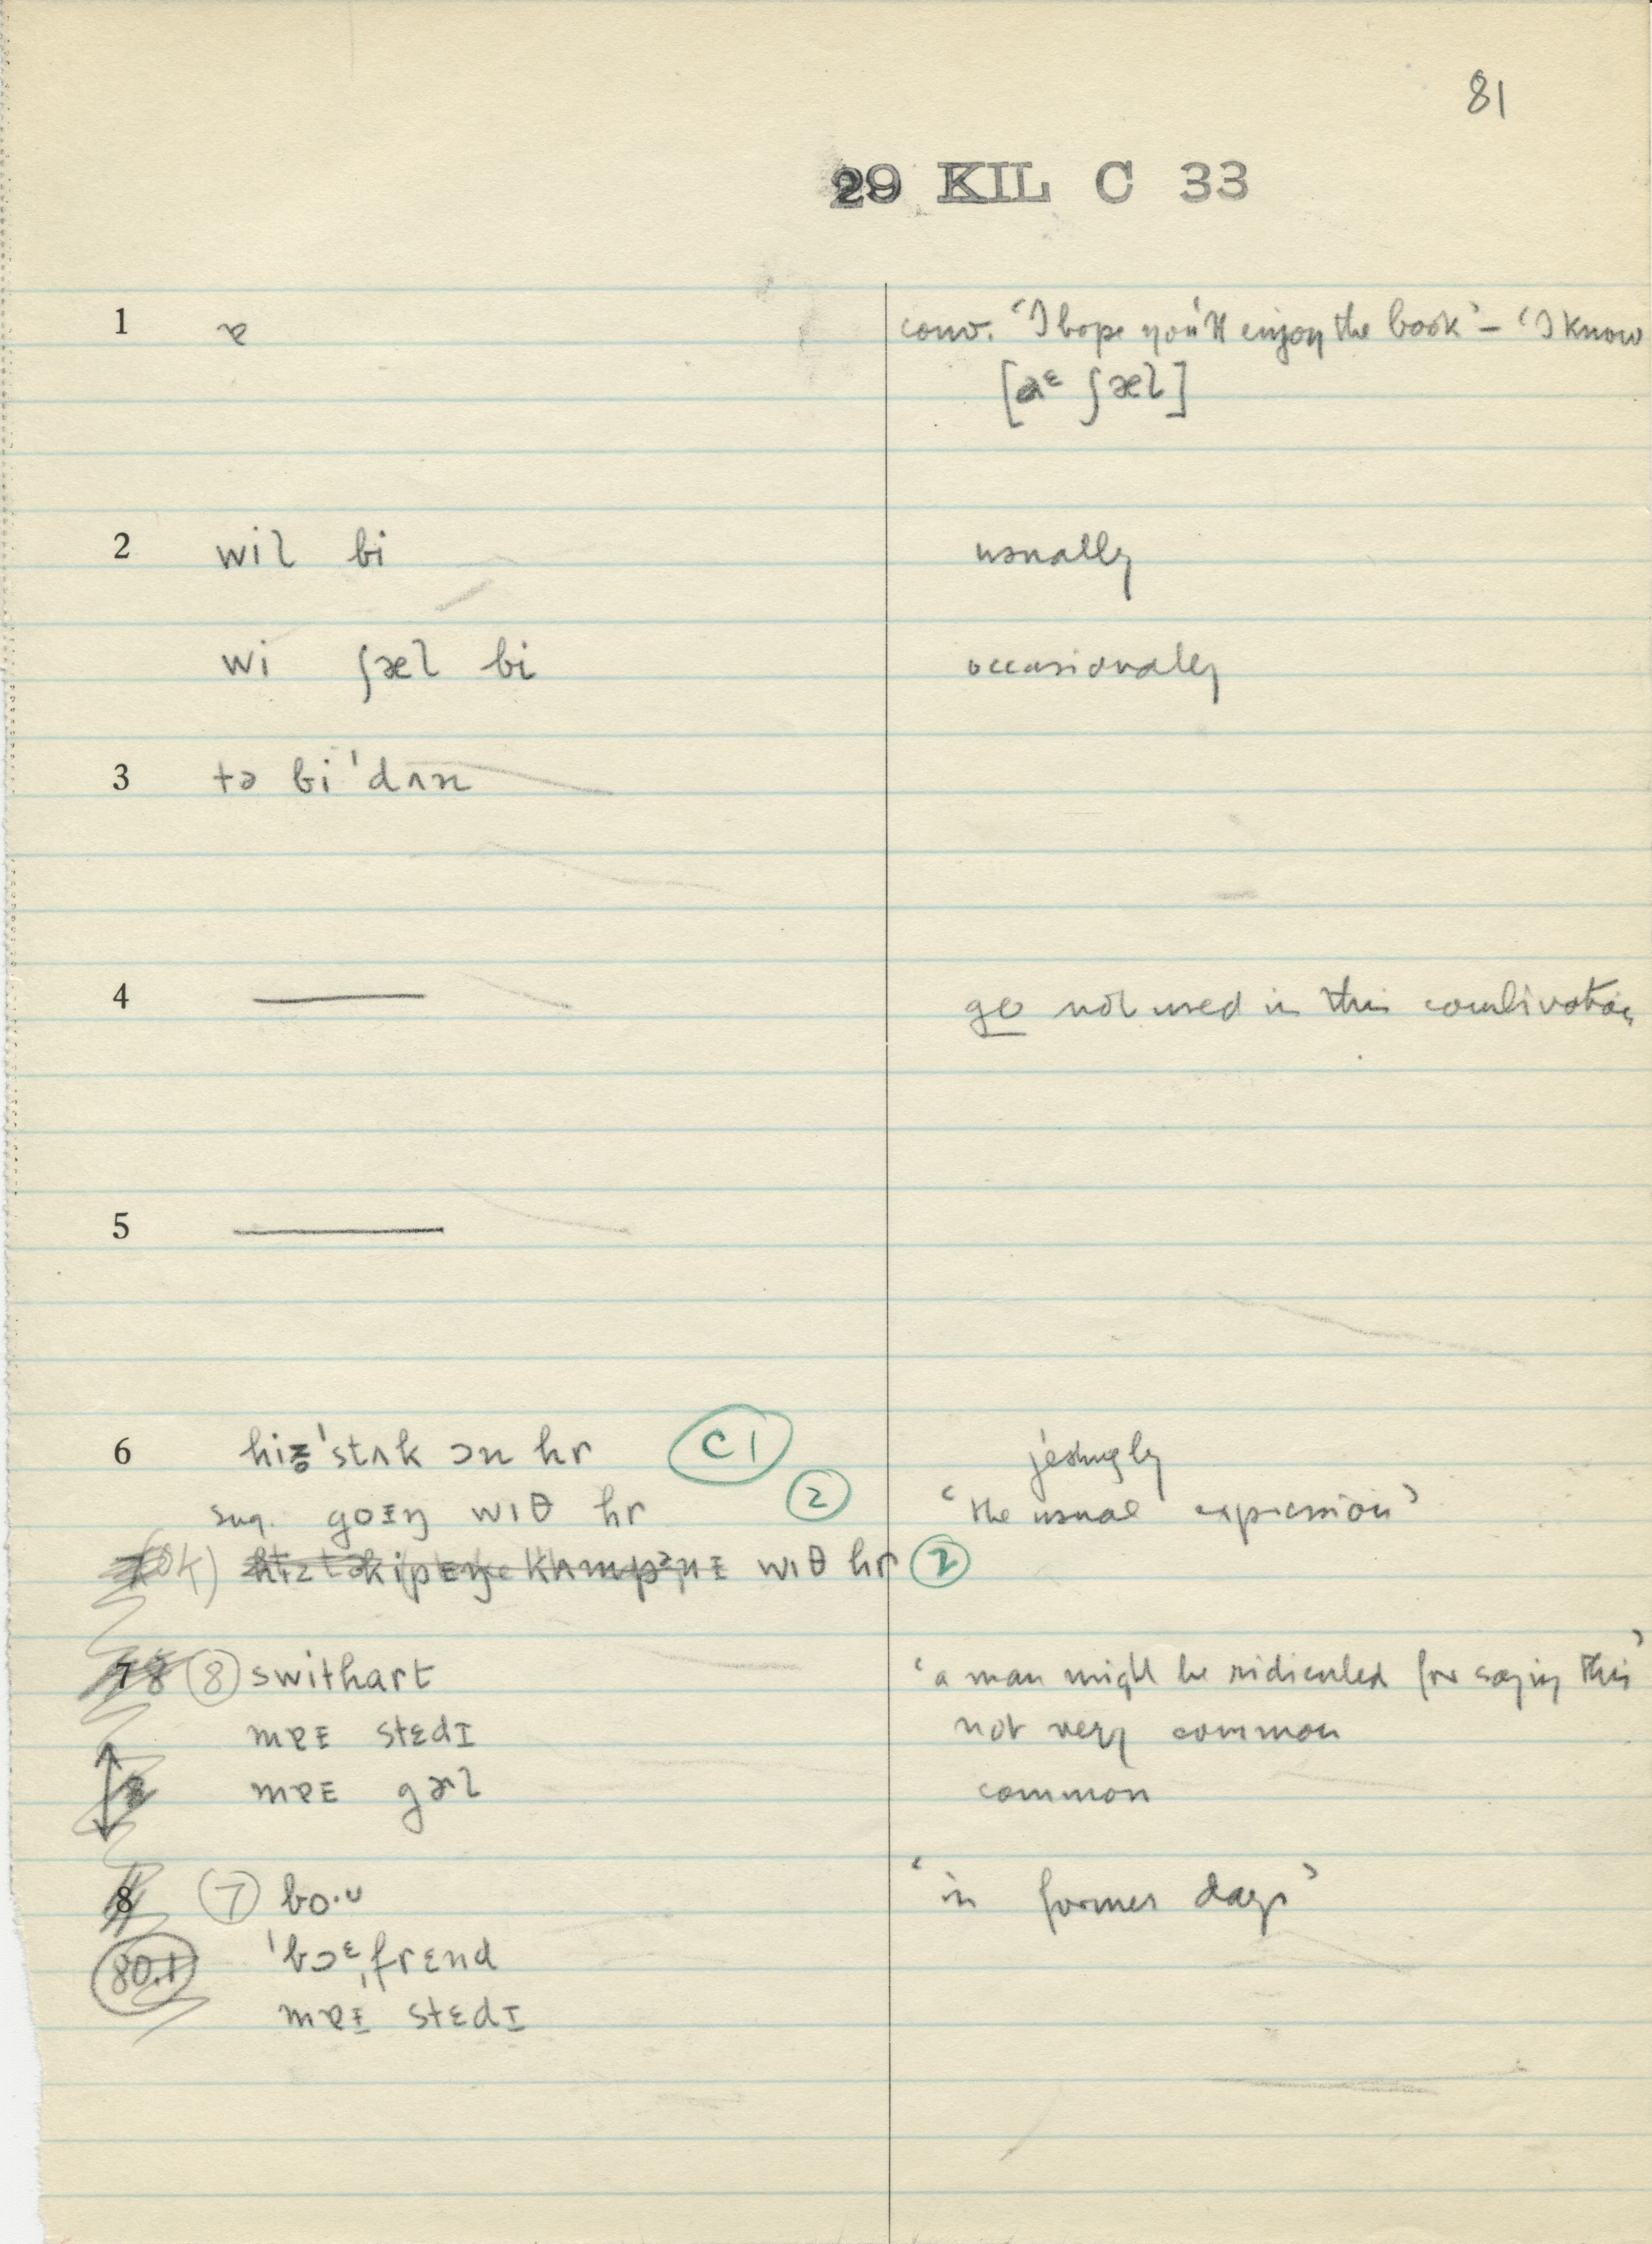 81
29 KIL C 33
1 ɐ conv. ‘I hope you'll enjoy the book’ – ‘I know
[ ʃæl]
2 wil bi usually
wi ʃæl bi occasionally
3 tə bi ˈdʌn
4 — go not used in this combination
5 —
6 hiz̥ ˈstʌk ɔn hr C1 jestingly
sug. goɪŋ wɪθ hr 2 ‘the usual expression’
(ok) wɪθ hr 2
7 8 swithart ‘a man might be ridiculed for saying this’
mɐɪ stɛdɪ not very common
mɐɪ gərl common
8 7 bo·ᴜ ‘in former days’
80.1 ˈbɔᵋˌfrɛnd
mɐɪ stɛdɪ